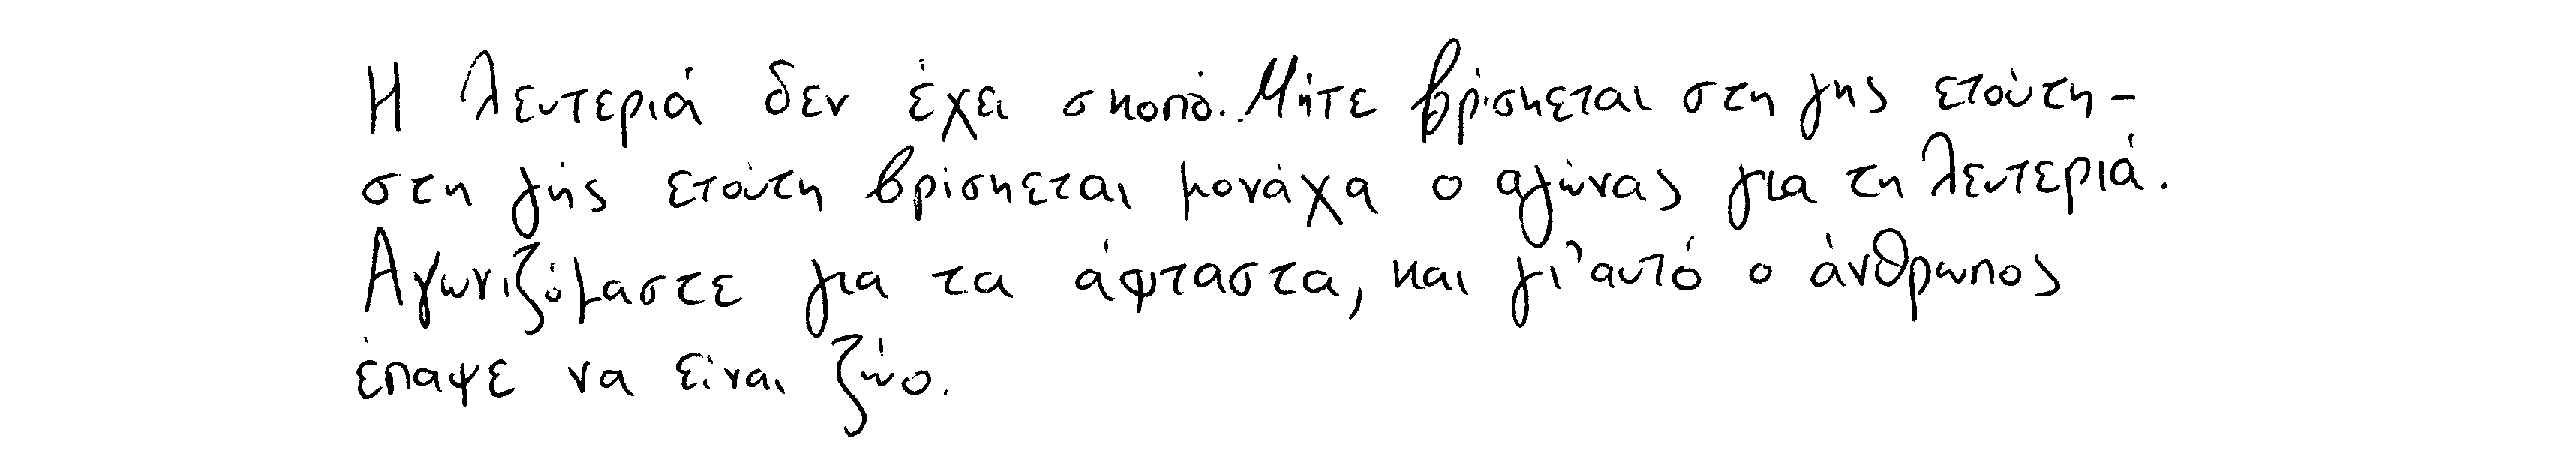 Η λευτεριά δεν έχει σκοπό. Μήτε βρίσκεται στη γης ετούτη -
στη γής ετούτη βρίσκεται μονάχα ο αγώνας για τη λευτεριά.
Αγωνιζόμαστε για τα άφταστα, και γι'αυτό ο άνθρωπος
έπαψε να είναι ζώο.